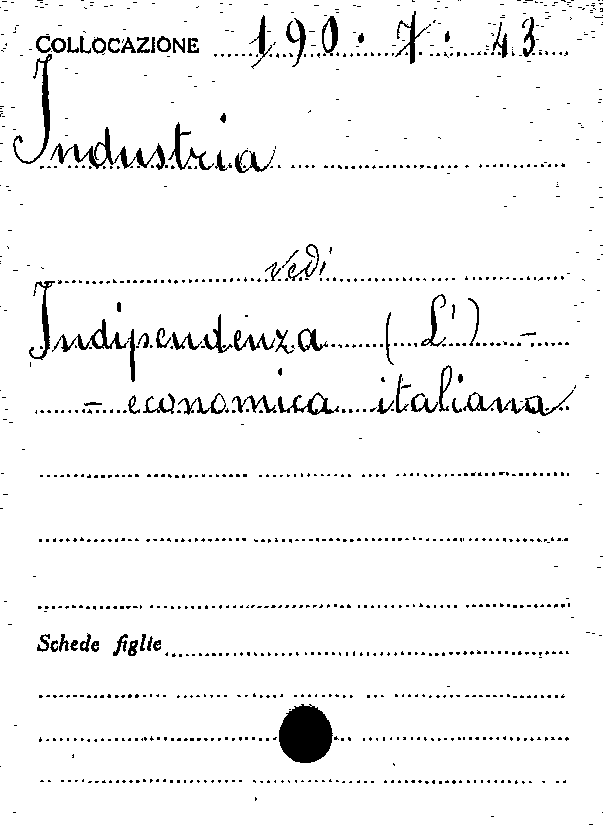 COLLOCAZIONE 190. 7. 43
Industria
vedi
Indipendenza (L') -
- economica italiana
Schede figlie